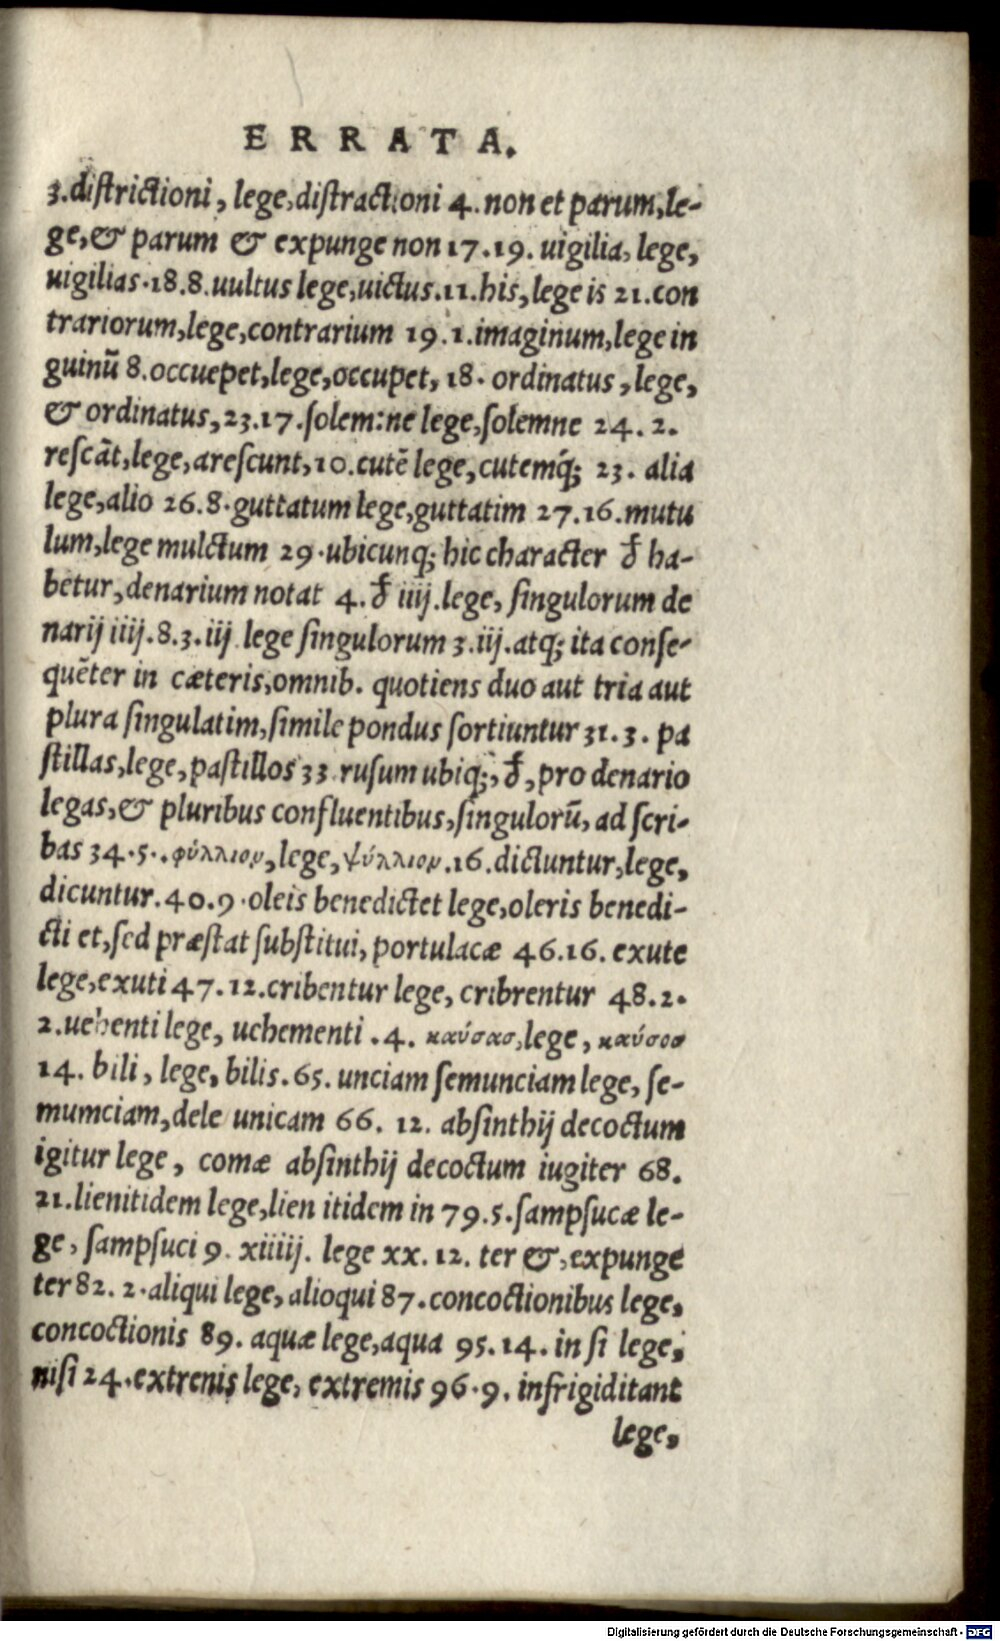 ERRATA.
3.districtioni, lege,distractioni 4. non et parum,le-
ge,& parum & expunge non 17.19. uigilia, lege,
uigilias.18.8.uultus lege,uictus.11.his,lege is 21.con
trariorum,lege,contrarium 19.1.imaginum,lege in
guinū 8.occuepet,lege,occupet, 18. ordinatus, lege,
& ordinatus,23.17.solem:ne lege,solemne 24.2.
rescāt,lege,arescunt,10.cutē lege,cutemq́; 23. alia
lege,alio 26.8.guttatum lege,guttatim 27.16.mutu
lum,lege mulctum 29.ubicunq; hic character ₰ ha-
betur,denarium notat 4.₰ iiij.lege, singulorum de
narij iiij.8.3.iij lege singulorum 3.iij.atq; ita conse-
quēter in cæteris,omnib. quotiens duo aut tria aut
plura singulatim,simile pondus sortiuntur 31.3. pa
stillas,lege,pastillos 33 rusum ubiq;,₰,pro denario
legas,& pluribus confluentibus,singulorū, ad scri-
bas 34.5..φύλλιον,lege,ψύλλιον.16.dictuntur,lege,
dicuntur.40.9.oleis benedictet lege,oleris benedi-
cti et,sed præstat substitui, portulacæ 46.16. exute
lege,exuti 47.12.cribentur lege, cribrentur 48.2.
2.uehenti lege, uehementi .4. καύσας,lege, καύσος
14. bili, lege, bilis.65. unciam semunciam lege, se-
mumciam,dele unicam 66. 12. absinthij decoctum
igitur lege, comæ absinthij decoctum iugiter 68.
21.lienitidem lege,lien itidem in 79.5.sampsucæ le-
ge, sampsuci 9. xiiiij. lege xx. 12. ter &,expunge
ter 82. 2.aliqui lege, alioqui 87.concoctionibus lege,
concoctionis 89. aquæ lege,aqua 95.14. in si lege,
nisi 24.extrenis lege, extremis 96.9. infrigiditant
lege,
Digitalisierung gefördert durch die Deutsche Forschungsgemeinschaft - DFG